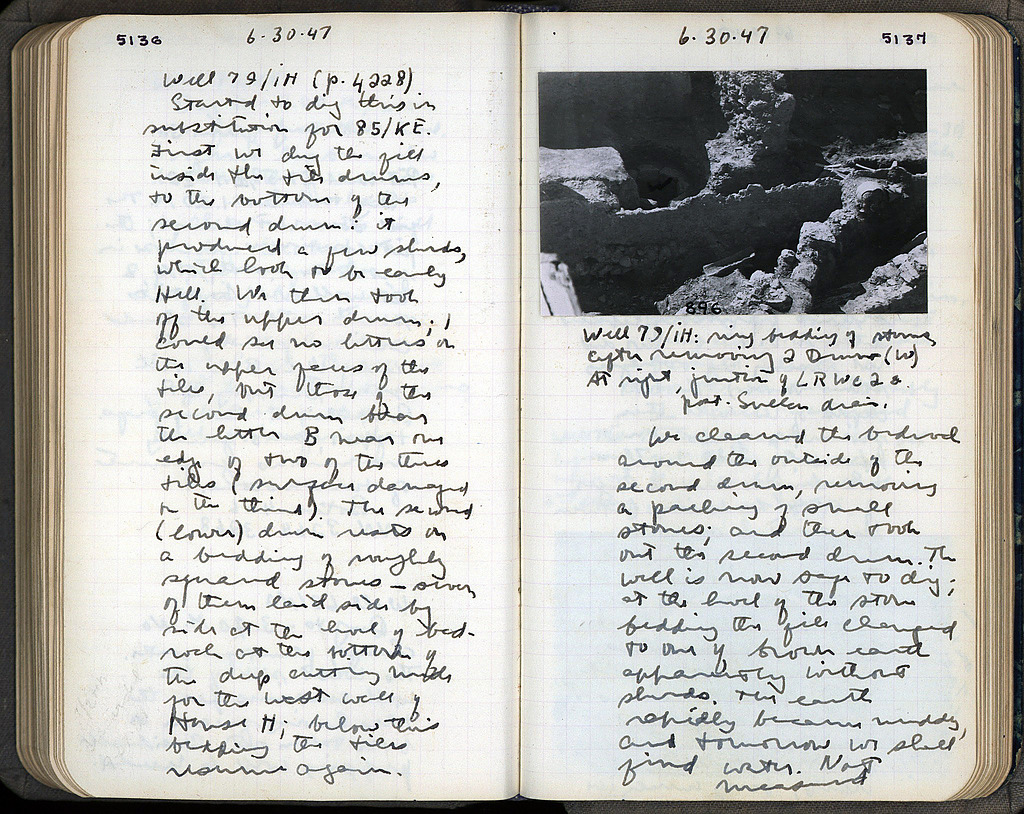 5136
6·30·47
Well 79/IH (p. 4228)
Started to dig this in
substitution for 85/KE.
First we dug the fill
inside the tile drums,
to the bottom of the
second drum: it
produced a few sherds,
which look to be early
Hell. We then took
off the upper drum; I
could see no letters on
the upper faces of the
tiles, but those of the
second drum bear
the letter B near one
edge of two of the three
tiles (surface damaged
on the third). The second
(lower) drum rests on
a bedding of roughly
squared stones – seven
of them laid side by
side at the level of bed-
rock at the bottom of
the deep cutting made
for the west wall of
House H; below this
bedding the tiles
resume again.
6·30·47
5137
896
Well 79/IH: ring bedding of stones
after removing 2 Drums (W)
At right, junction of LR WC 2 &
post-Sullan drain.
We cleared the bedrock
around the outside of the
second drum, removing
a packing of small
stones; and then took
out the second drum. The
well is now safe to dig;
at the level of the stone
bedding the fill changed
to one of brown earth
apparently without
sherds. The earth
rapidly became muddy,
and tomorrow we shall
find water. Not
measured